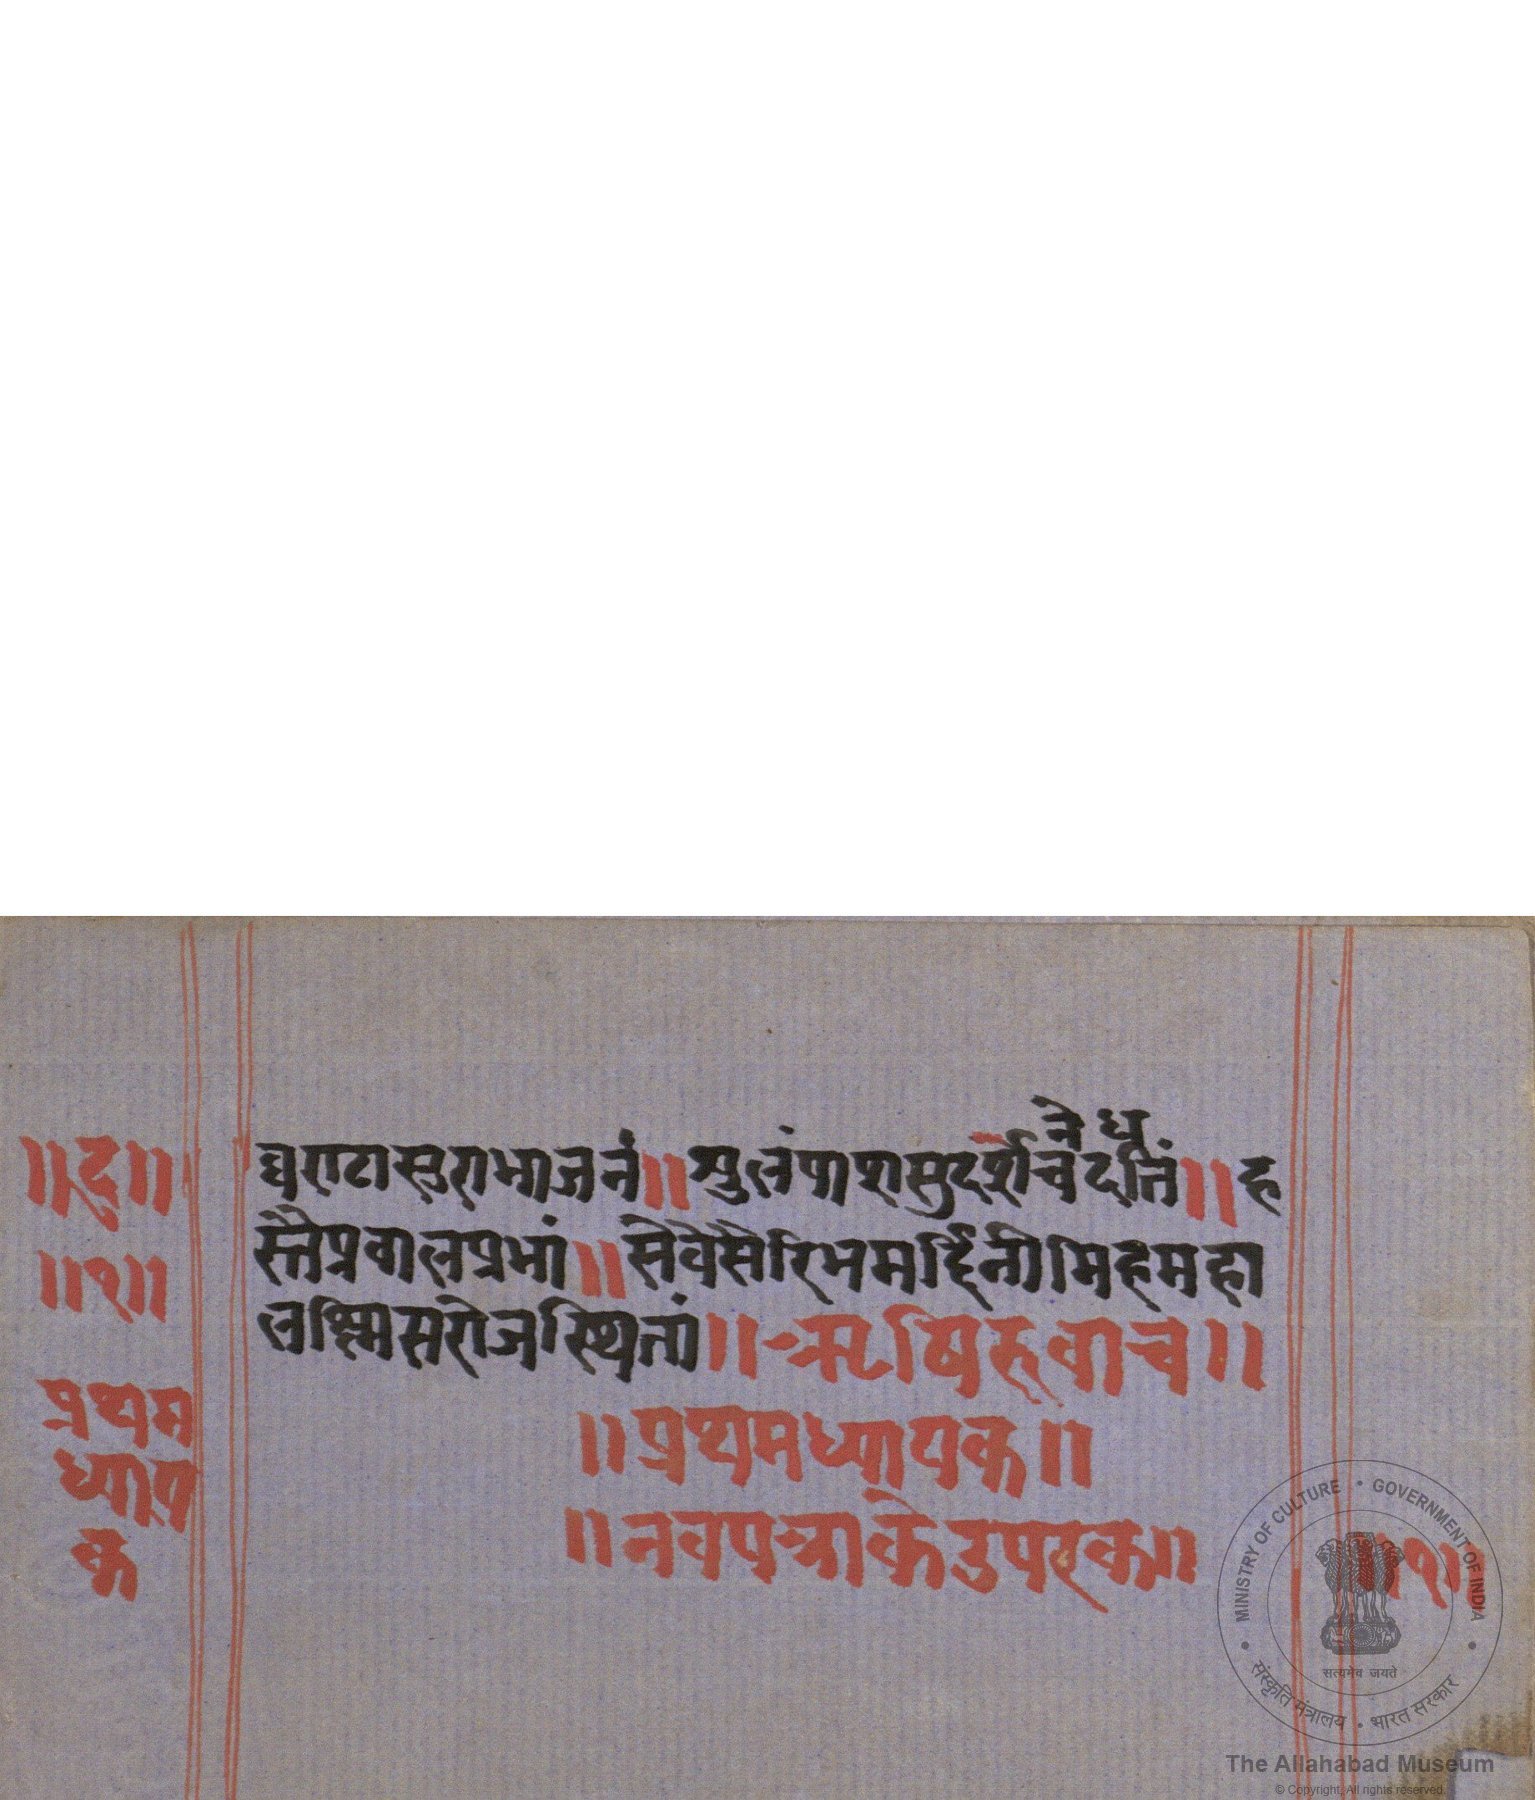 नेध
घण्टासुराभाजनं॥शुलंपाशसुदर्शैचदतिं॥ह
स्तैप्रवालप्रभां॥सेवेसैरिभमर्द्दिनीमिहमहा
लक्ष्मिसरोजस्थितां॥ऋषिरूवाच॥
॥प्रथमध्यायक॥
॥नवपत्राकेउपरक॥
॥दु॥
॥१॥
प्रथम
ध्याय
क
॥१॥
MINISTRY OF CULTURE • GOVERNMENT OF INDIA
सत्यमेव जयते
संस्कृति मंत्रालय • भारत सरकार
The Allahabad Museum
© Copyright, All rights reserved.